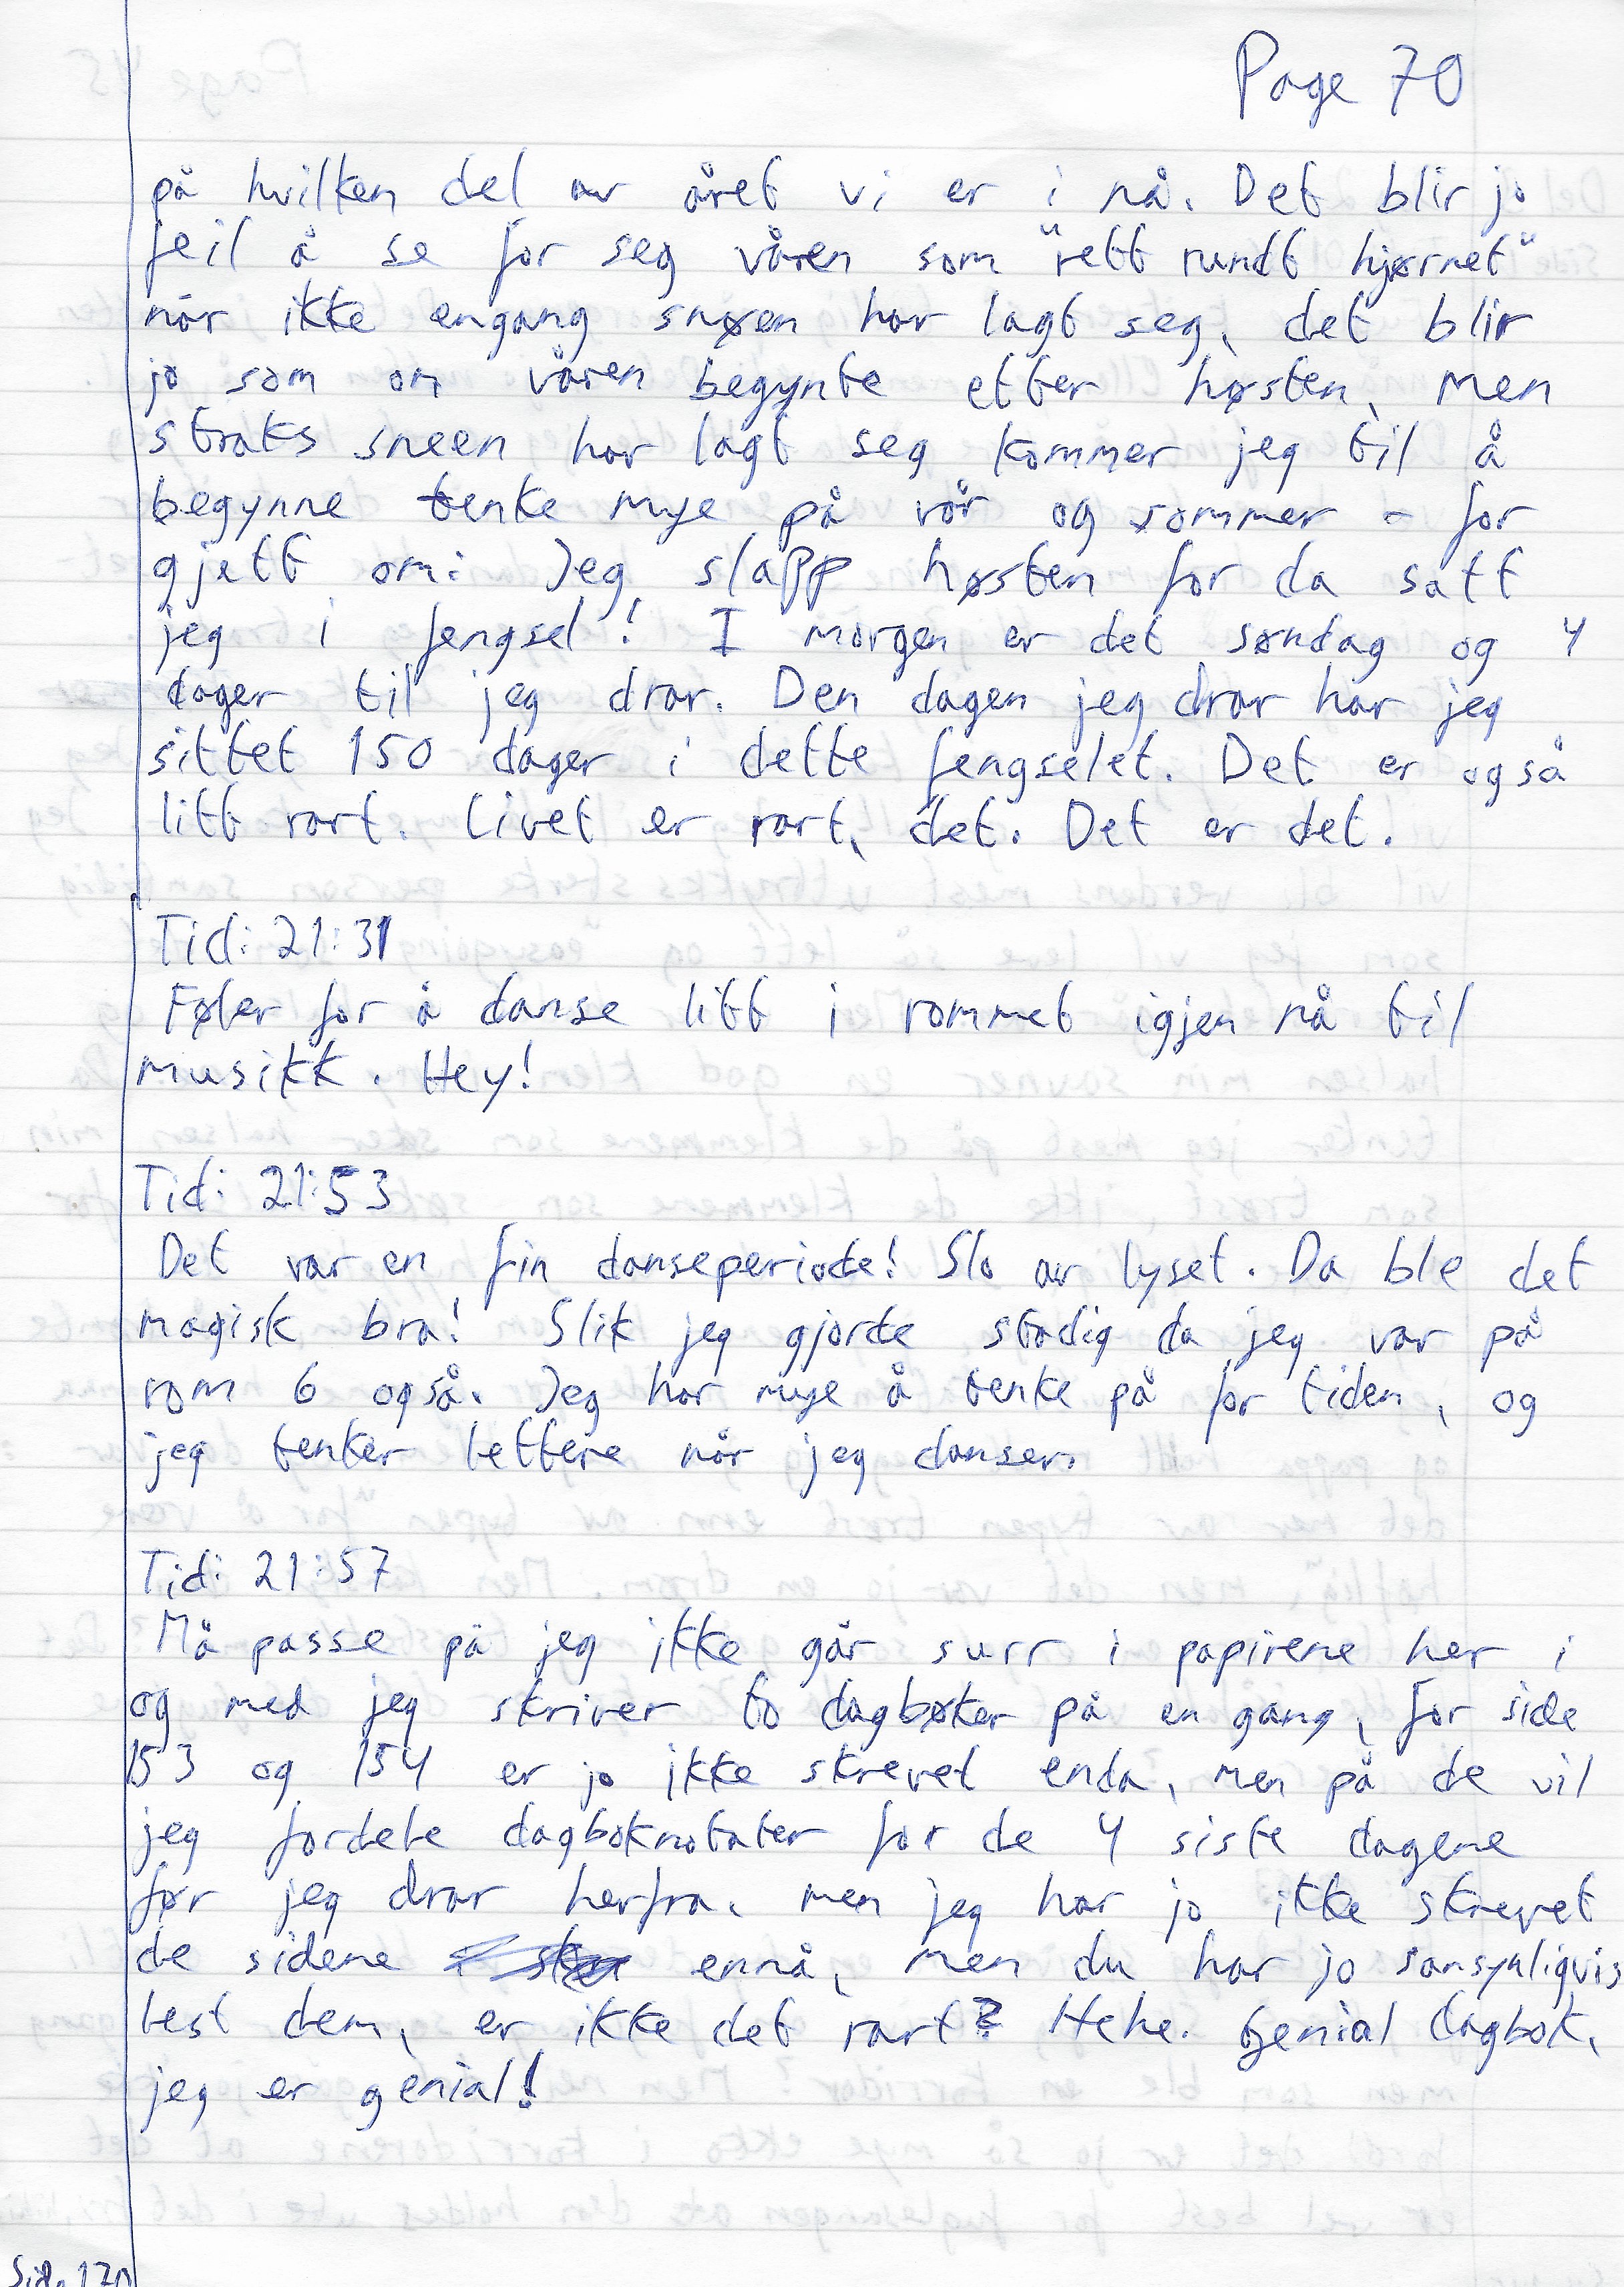 Page 70
på hvilken del av året vi er i nå. Det blir jo
feil å se for seg våren som "rett rundt hjørnet"
når ikke engang snøen har lagt seg, det blir
jo som om våren begynte etter høsten, men
straks sneen har lagt seg kommer jeg til å
begynne tenke mye på vår og sommer - for
gjett om: Jeg slapp høsten for da satt
jeg i fengsel! I morgen er det søndag og 4
dager til jeg drar. Den dagen jeg drar har jeg
sittet 150 dager i dette fengselet. Det er også
litt rart. Livet er rart, det. Det er det.
Tid: 21:31
Føler for å danse litt i rommet igjen nå til
musikk. Hey!
Tid: 21:53
Det var en fin danseperiode! Slo av lyset. Da ble det
magisk bra! Slik jeg gjorde stadig da jeg var på
rom 6 også. Jeg har mye å tenke på for tiden, og
jeg tenker lettere når jeg danser.
Tid: 21:57
Må passe på jeg ikke går surr i papirene her i
og med jeg skriver to dagbøker på en gang, for side
153 og 154 er jo ikke skrevet enda, men på de vil
jeg fordele dagboknotater for de 4 siste dagene
før jeg drar herfra. men jeg har jo ikke skrevet
de sidene ennå, men du har jo sansynligvis
lest dem, er ikke det rart? Hehe. Genial dagbok,
jeg er genial!
Side 170